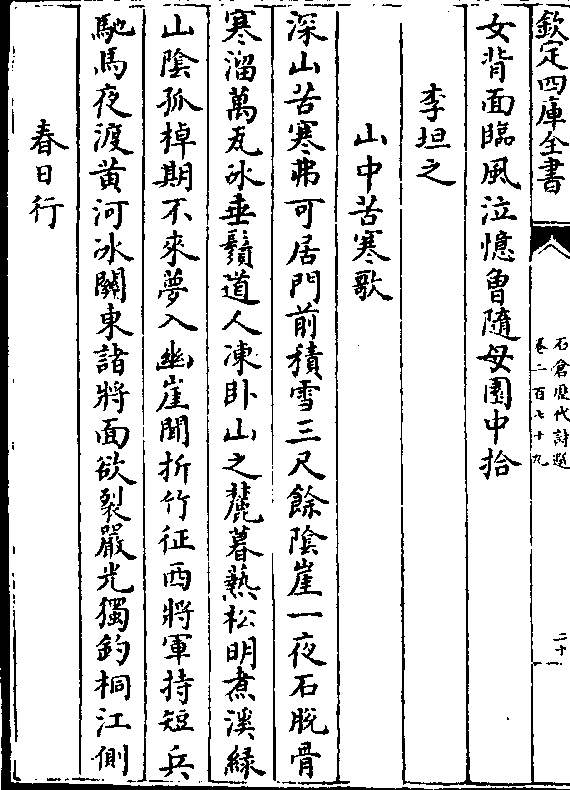 欽定四庫全書
石倉歴代詩選
卷二百七十九
二十
女背面臨風泣憶曾隨母園中拾
李坦之
山中苦寒歌
深山苦寒弗可居門前積雪三尺餘陰崖一夜石脫骨
寒溜萬瓦冰垂鬚道人凍卧山之麓暮爇松明煮溪緑
山陰孤棹期不來夢入幽崖聞折竹征西將軍持短兵
馳馬夜渡黄河冰關東諸將面欲裂嚴光獨釣桐江側
春日行